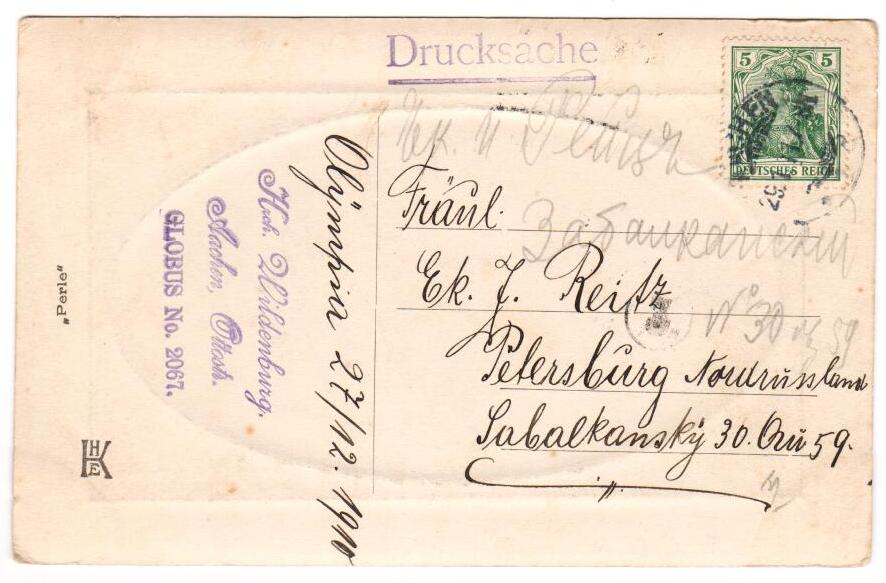 Drucksache
5 5
DEUTSCHES REICH
Ек. И. Рейцъ
Забалканский
№ 30 кв 59
Fräul.
Ek. J. Reitz
Petersburg Nordrussland
Sabalkansky 30. Qu 59.
Olÿmpia 27/12. 1910
Hch. Wildenburg.
Aachen, Ottostr.
GLOBUS No. 2067.
„Perle"
HKE